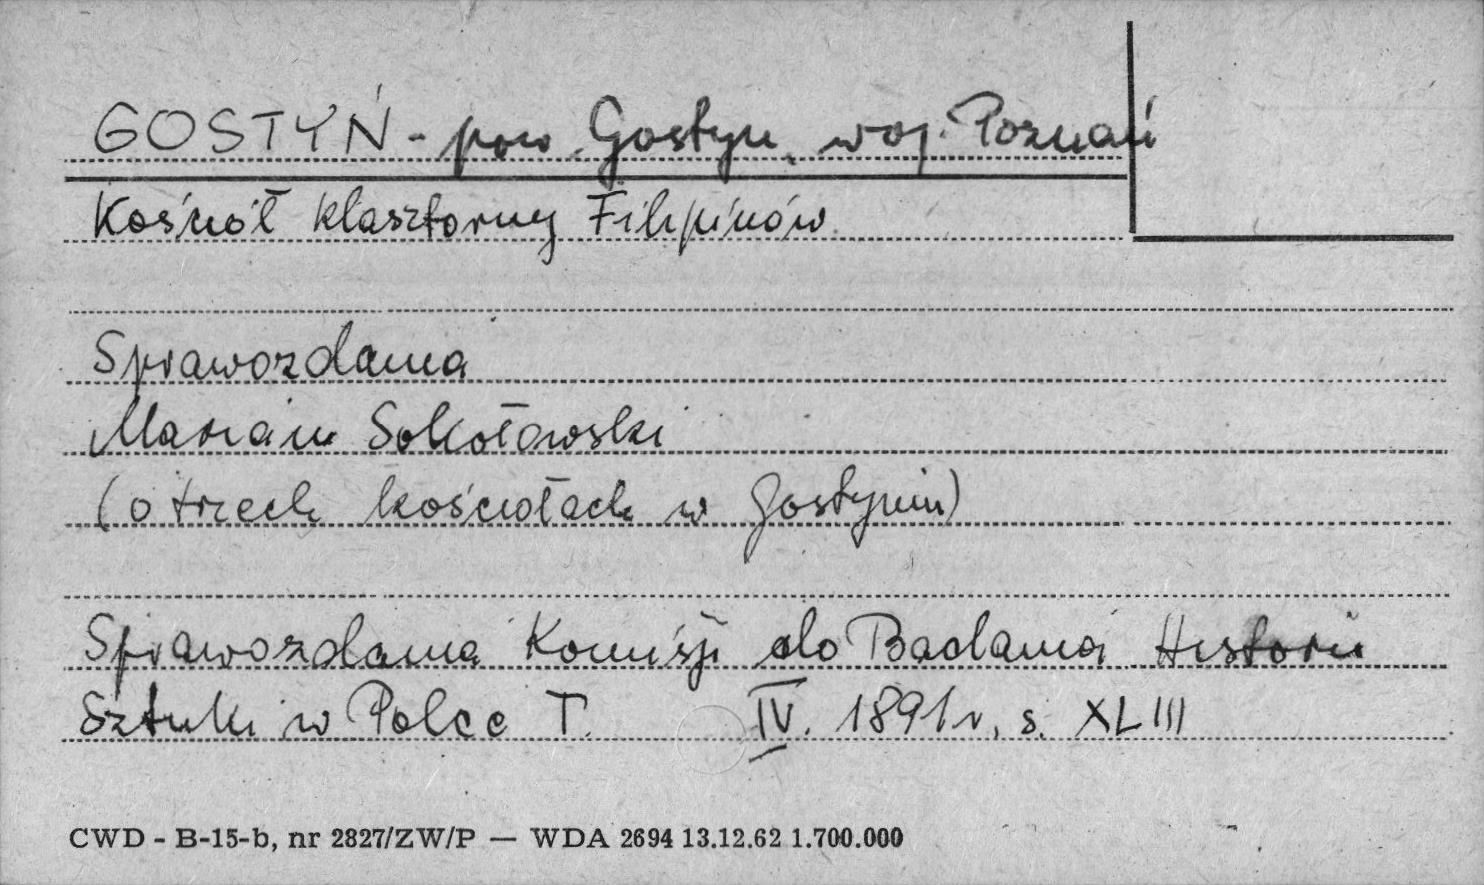 GOSTYŃ - pow. Gostyń, woj. Poznań
Kościół klasztorny Filipinów
Sprawozdania
Marian Sokołowski
(o trzech kościołach w Gostyniu)
Sprawozdania Komisji do Badania Historii
Sztuki w Polce T. IV. 1891 r, s. XLIII
CWD - B-15-b, nr 2827/ZW/P — WDA 2694 13.12.62 1.700.000